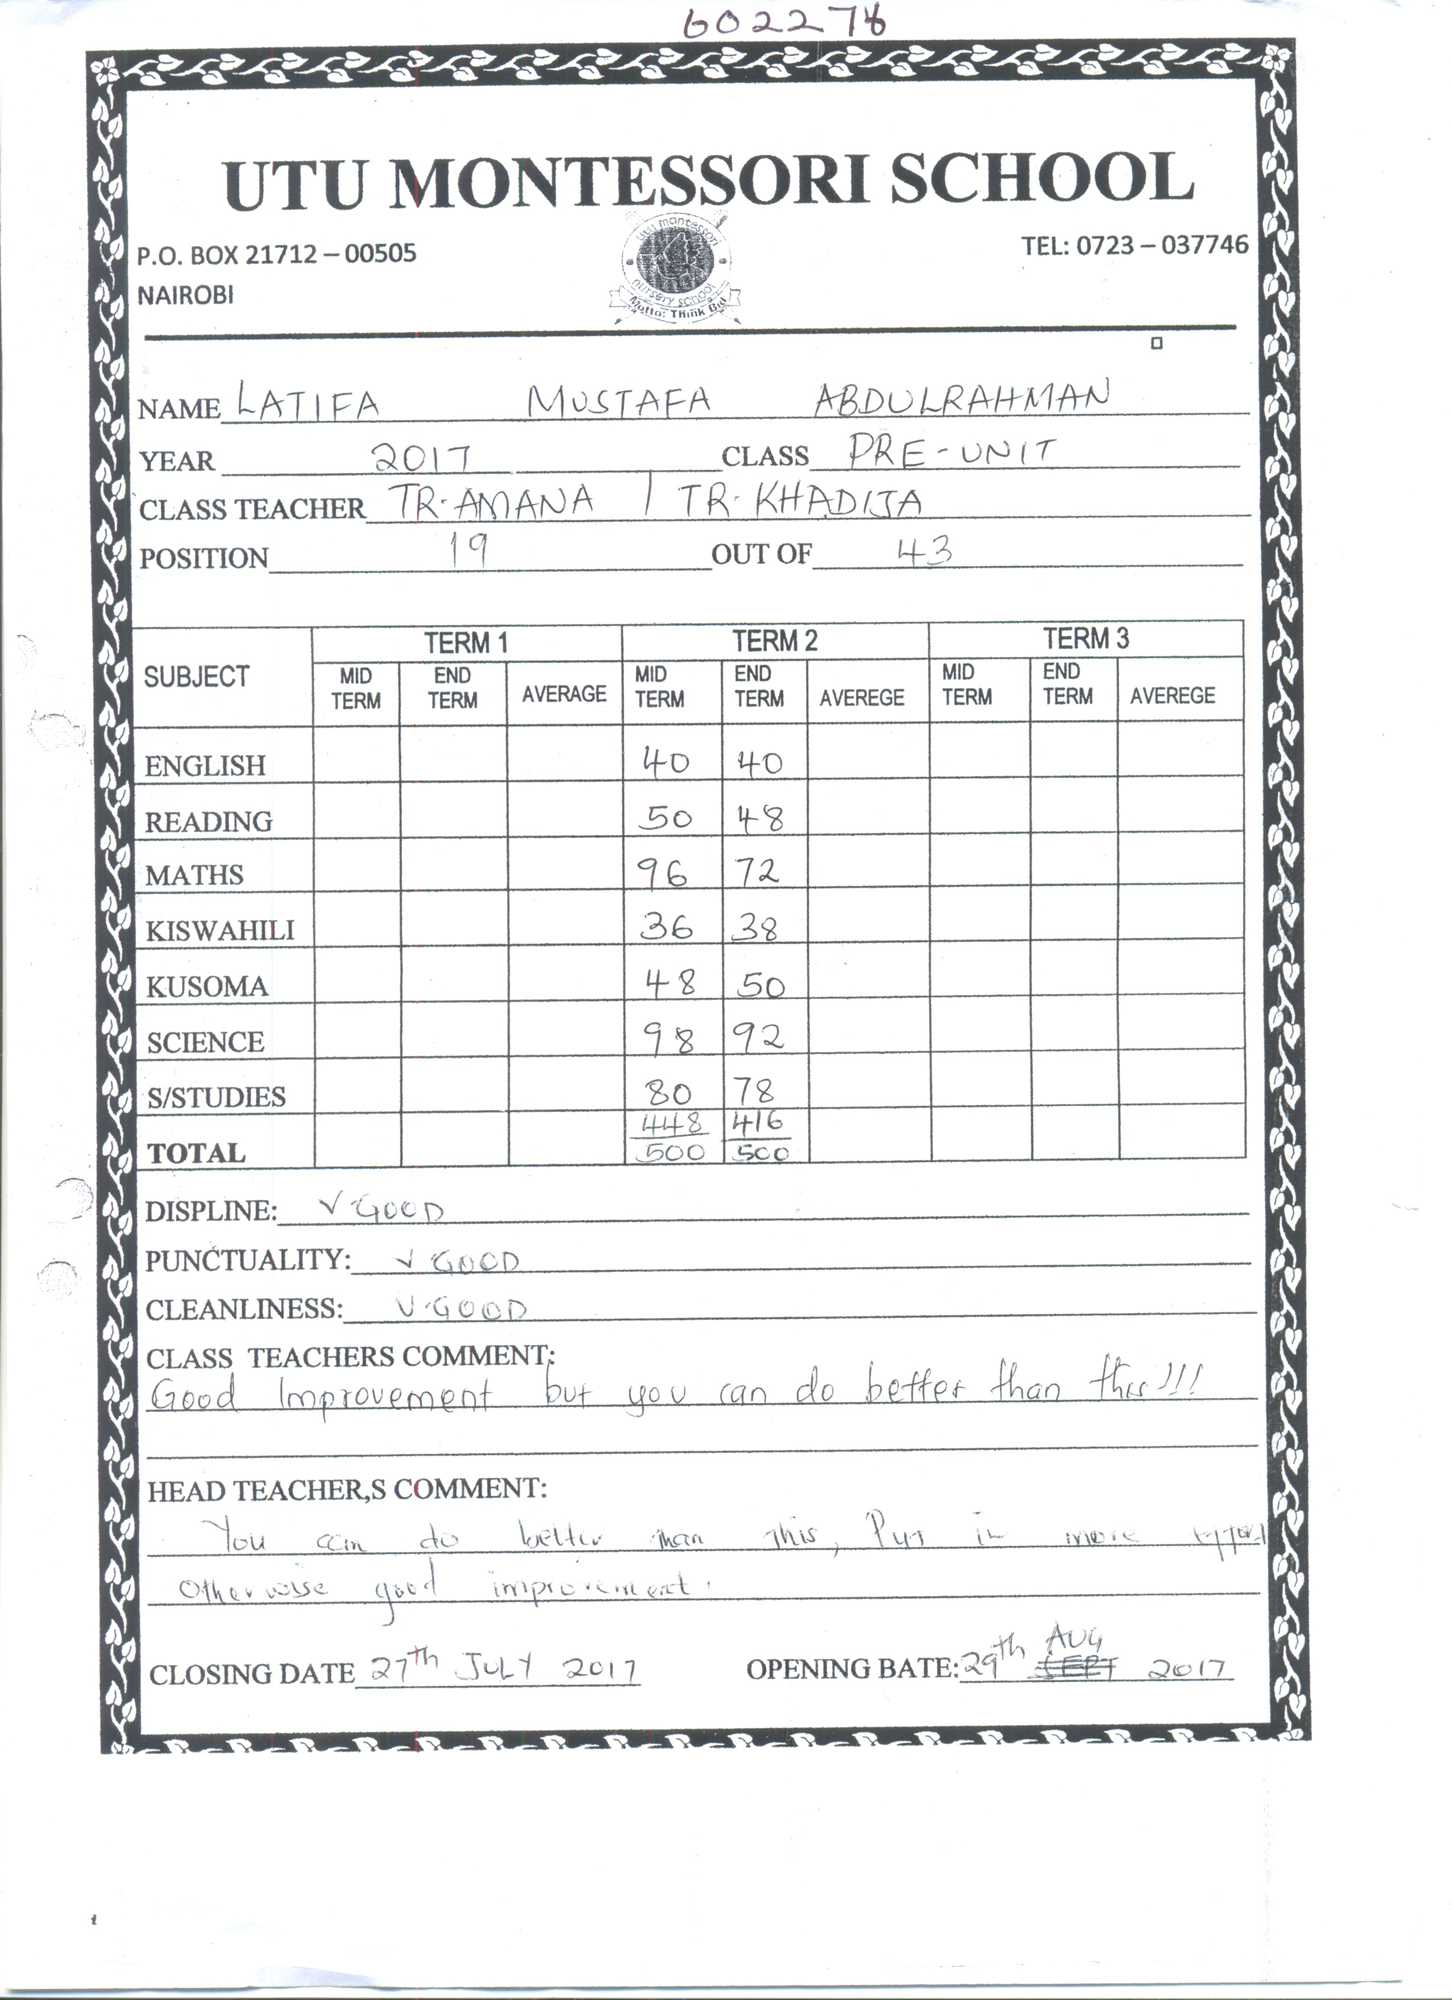 602278
UTU MONTESSORI SCHOOL
P.O. BOX 21712 – 00505
TEL: 0723 – 037746
NAIROBI
utu montessori
nursery school
Motto: Think Big
NAME LATIFA MUSTAFA ABDULRAHMAN
YEAR 2017 CLASS PRE-UNIT
CLASS TEACHER TR. AMANA / TR. KHADIJA
POSITION 19 OUT OF 43
SUBJECT TERM 1 TERM 2 TERM 3
MID TERM END TERM AVERAGE MID TERM END TERM AVEREGE MID TERM END TERM AVEREGE
ENGLISH 40 40
READING 50 48
MATHS 96 72
KISWAHILI 36 38
KUSOMA 48 50
SCIENCE 98 92
S/STUDIES 80 78
TOTAL 448/500 416/500
DISPLINE: V.GOOD
PUNCTUALITY: V GOOD
CLEANLINESS: V.GOOD
CLASS TEACHERS COMMENT:
Good Improvement but you can do better than this!!!
HEAD TEACHER,S COMMENT:
You can do better than this, Put in more effort
Otherwise good improvement.
CLOSING DATE 27th JULY 2017 OPENING BATE: 29th AUG SEPT 2017